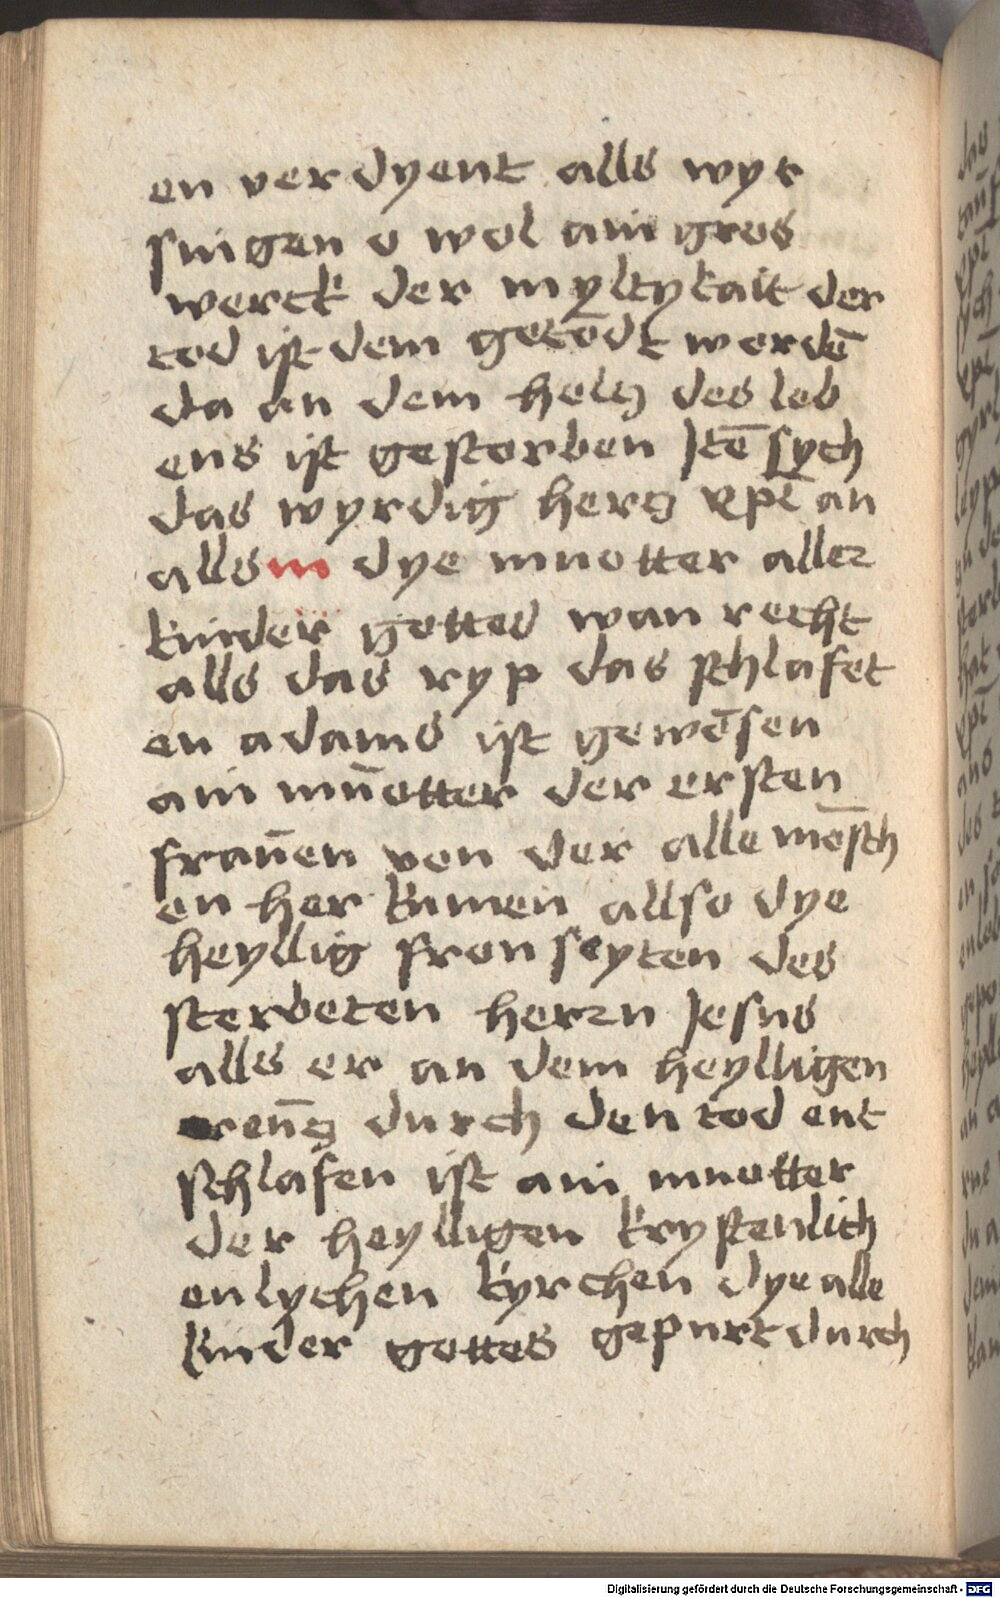 en verdyent alls wyr
singen o wol ain gros
werck der myltykait der
tod ist dem getödt werdē
da an dem holcz des leb
ens ist gestorben Jtē sych
das wyrdig hercz xp̄i an
alls ain dye muotter aller
kinder gottes wan recht
alls das ryp das schlafet
en adams ist gewēsen
ain mūotter der ersten
fraūen von der alle mēsch
en her kumen allso dye
heyllig fron seyten des
sterbeten herrn Jesus
alls er an dem heylligen
creūcz durch den tod ent
schlafen ist ain muotter
der heylligen krystenlich
enlychen kyrchen dye alle
kinder gottes gepurt durch
Digitalisierung gefördert durch die Deutsche Forschungsgemeinschaft - DFG